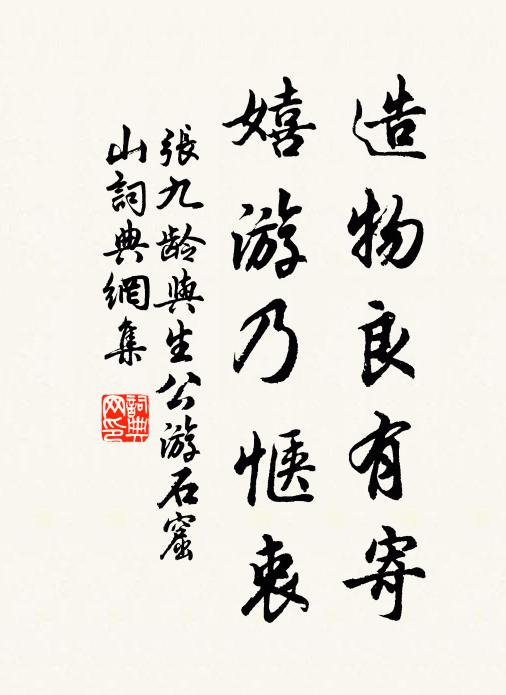 造物良有寄
嬉游乃惬衷
張九龄與生公游石窟
山詞典網集
詞典
网印